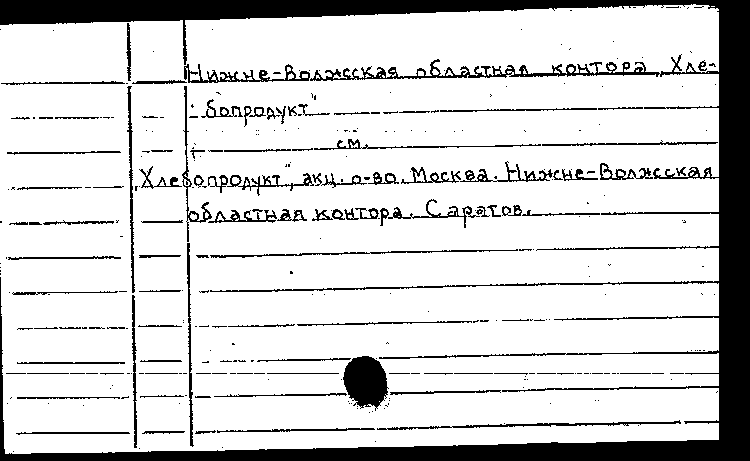 Нижне-Волжская областная контора „Хле-
бопродукт"
см.
„Хлебопродукт", акц. о-во. Москва. Нижне-Волжская
областная контора. Саратов.